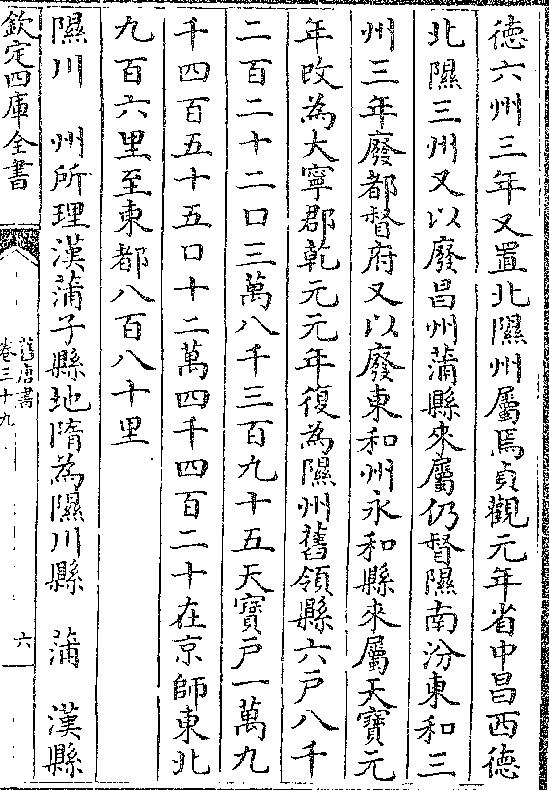 德六州三年又置北隰州屬焉貞觀元年省中昌西德
北隰三州又以廢昌州蒲縣來屬仍督隰南汾東和三
州三年廢都督府又以廢東和州永和縣來屬天寶元
年改為大寧郡乾元元年復為隰州舊領縣六戸八千
二百二十二口三萬八千三百九十五天寶戸一萬九
千四百五十五口十二萬四千四百二十在京師東北
九百六里至東都八百八十里
隰川　州所理漢蒲子縣地隋為隰川縣　蒲　漢縣
欽定四庫全書
舊唐書
卷三十九
六